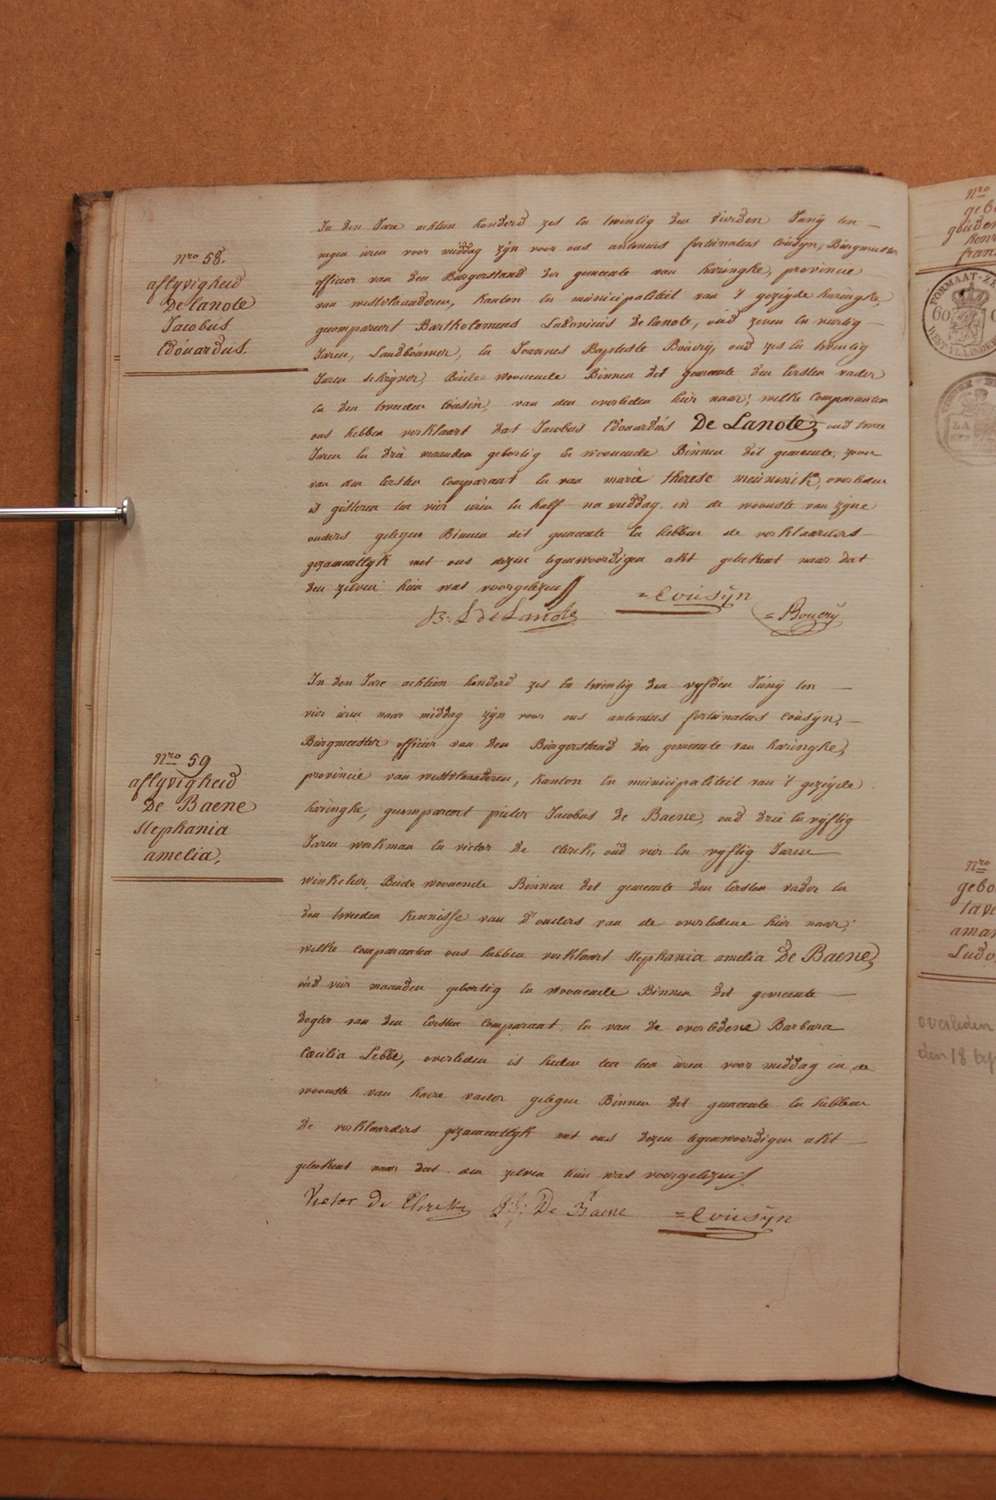 Nro 58.
aflyvigheid
De Lanote
Jacobus
Edóuardus.
In den Jare achtien honderd zes en twintig den vierden Junij ten
negen uren voor middag zijn voor ons antonius fortunatus Cousyn, Burgmeester
officier van den Burgerstand der gemeente van haringhe, provincie
van westvlaanderen, kanton en municipaliteit van 't gezijde haringhe,
gecompareert Bartholomeus Ludovicus De Lanote, oud zeven en veertig
Jaren, Landbouwer, en Joannes Baptiste Bouerij, oud zes en twintig
Jaren, Beide woonende Binnen dit gemeente den eersten vader
en den tweeden Cousin, van den overleden hier naer; welke Comparanten
ons hebben verklaart dat Jacobus Edouardus De Lanote, oud twee
Jaren en drie maanden geboртig en woonende Binnen dit gemeente, zoon
van den eersten comparant en van marie therese, overleden
is gisteren ten vier uren en half na middag in de woonste van zyne
ouders gelegen Binnen dit gemeente en hebben de verklaarders
gezamentlyk met ons dezen tegenwoordigen akt geteekent naer dat
den zelven hun was voorgelezen
B: L De Lanote
=Cousÿn
=Bouerÿ
Nro 59
aflyvigheid
De Baene
Stephania
amelia,
In den Jare achtien honderd zes en twintig den vyfden Junij ten
vier uren naer middag zyn voor ons antonius fortunatus Cousyn,
Burgmeester officier van den Burgerstand der gemeente van haringhe,
provincie van westvlaanderen, kanton en municipaliteit van 't gezijde
haringhe, gecompareert pieter Jacobus De Baene, oud drie en vyftig
Jaren werkman en victor De Clerck, oud vier en vyftig Jaren
winkelier, Beide woonende Binnen dit gemeente den eersten vader en
den tweeden kennisse van d'ouders van de overledene hier naer;
welke comparanten ons hebben verklaart Stephania amelia De Baene,
oud vier maanden gebortig en woonende Binnen dit gemeente
dogter van den eersten comparant en van de overledene Barbara
Cæcilia Lebbe, overleden is heden ten tien uren voor middag in de
woonste van haere vader gelegen Binnen dit gemeente en hebben
de verklaarders gezamentlyk met ons dezen tegenwoordigen akt
geteekent naer dat den zelven hun was voorgelezen.
Victor De Clerck
P: J: De Baene
=Cousÿn
Nro
FORMAAT-Z
60
WEST VLAANDEREN
Nro
overleden
den 18